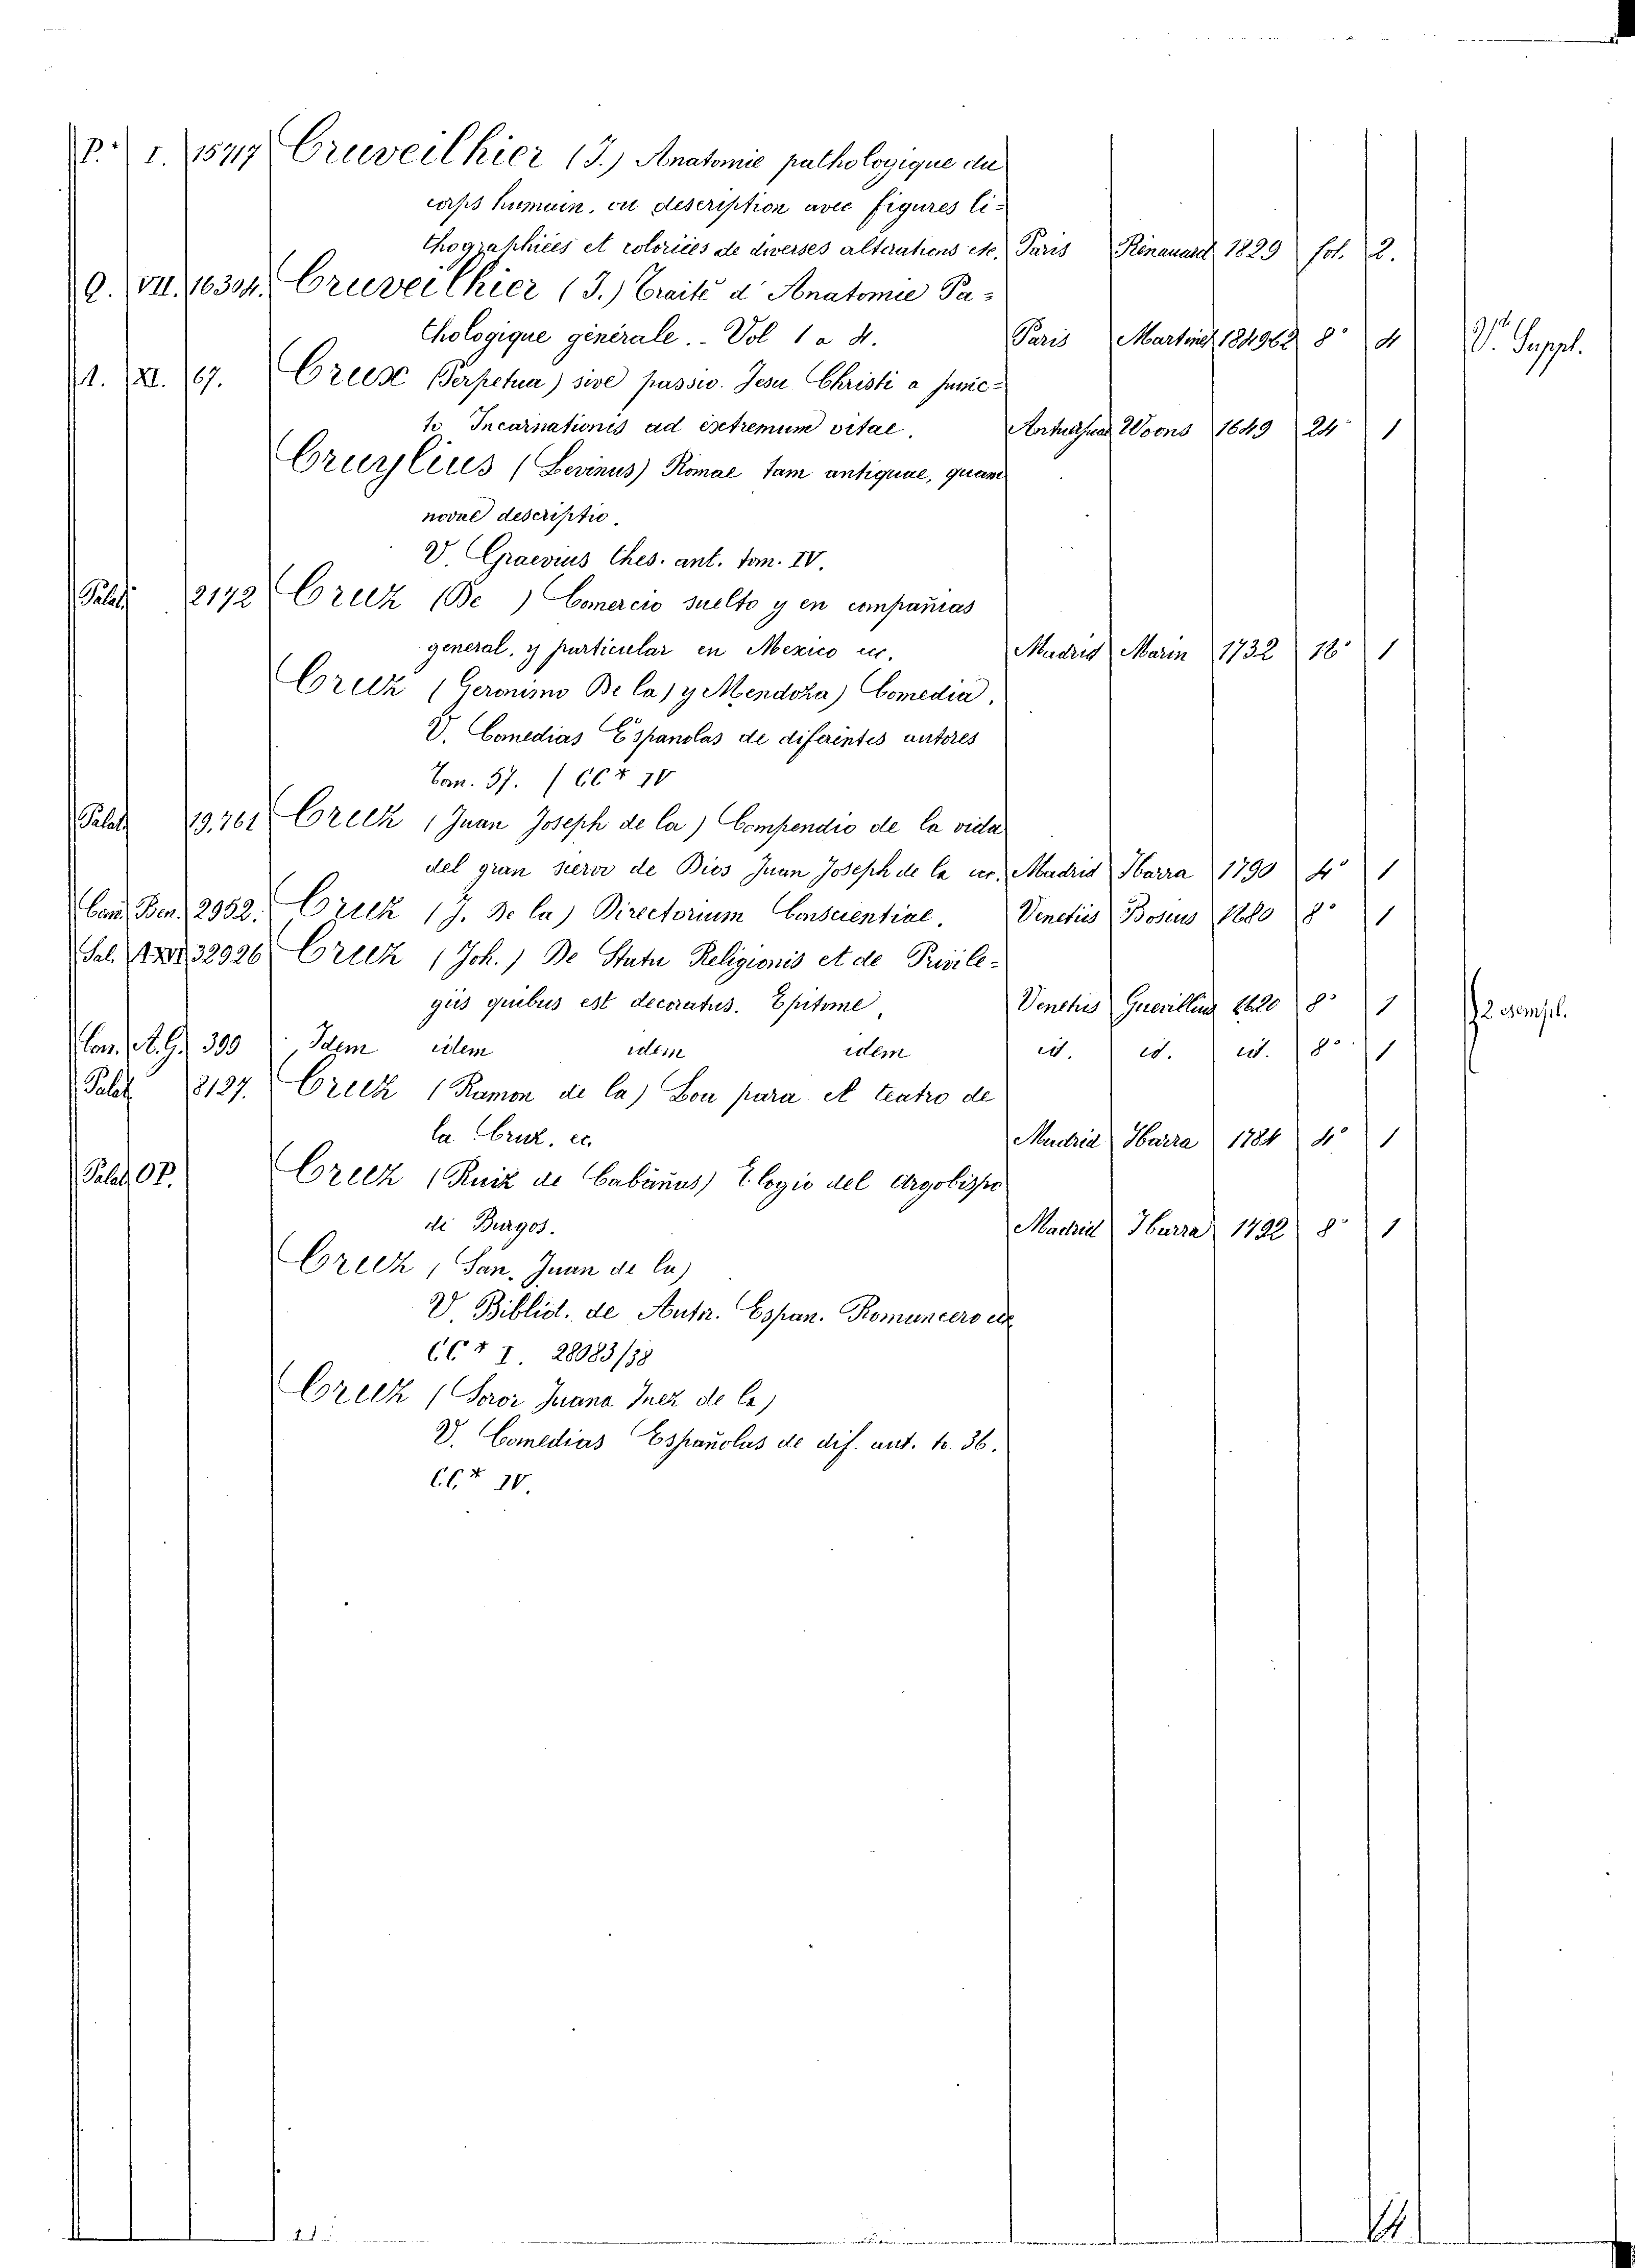 P. I. 15717 Cruveilhier (J.) Anatomie pathologique du
corps humain, ou description avec figures li-
thographiées et coloriées de diverses alterations etc. Paris Renauard 1829 fol. 2.
Q. VII. 16304. Cruveilhier (J.) Traité d'Anatomie Pa-
thologique générale.. Vol 1 a 4. Paris Martinet 184962 8° 4 V. Suppl.
1. XI. 67. Cruse Perpetua) sive passio. Jesu Christi a
to Incarnationis ad extremum vitae. Woons 1649 24 1
Cruylius (Levinus) Romae tam antiquae, quam
novae descriptio.
V. Graevius thes. ant. tom. IV.
Palat 2172 Cruz (De ) Comercio suelto y en compañias
general, y particular en Mexico ec. Madrid Marin 1732 18° 1
Cruz (Geronimo De la) y Mendoza) Comedia.
V. Comedias Espanolas de diferentes autores
Tom. 37. / CC* IV
Palat 19,761 Cruz (Juan Joseph de la) Compendio de la vida
del gran siervo de Dios Juan Joseph de la ec. Madrid Ibarra 1790 4° 1
Can. Ben. 2952. Cruz (J. De la) Directorium Conscientiae. Venetiis Bosius 1680 8° 1
Sal. 32926 Cruz (Joh.) De Statu Religionis et de Privile-
giis quibus est decoratus. Epitome, Venetiis 1620 8° 1 2 esempl.
Con. A.G. 399 Idem idem idem idem id. id. id. 8° 1
Palat 8127. Cruz (Ramon de la) Lou para el teatro de
la Cruz. ec. Madrid Ibarra 1784 4° 1
Palat OP. Cruz (Ruiz de Cabañus) Elogio del Argobispo
di Burgos. Madrid Ibarra 1792 8° 1
Cruz (San. Juan de la)
V. Bibliot. de Autor. Espan. Romancero etc
CC* I. 28083/38
Cruz (Soror Juana Inez de la)
V. Comedias Españolas de dif. aut. to. 36.
CC* IV.
21 14